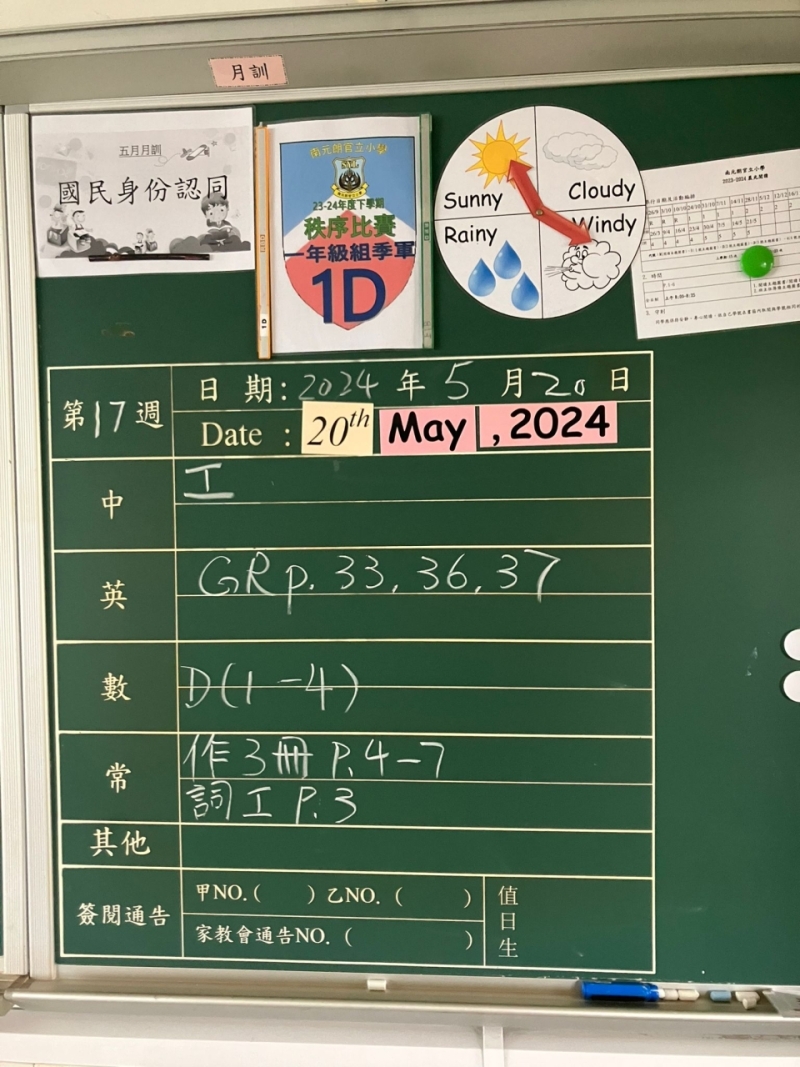 月訓
五月月訓
國民身份認同
南元朗官立小學
23-24年度下學期
秩序比賽
一年級組季軍
1D
1D
Sunny
Cloudy
Rainy
Windy
南元朗官立小學
第17週
日 期: 2024 年 5 月 20 日
Date : 20th May , 2024
中
工
英
GR p. 33, 36, 37
數
D(1-4)
常
作3冊 P.4-7
詞工 P.3
其他
簽閱通告
甲NO.( ) 乙NO. ( )
家教會通告NO. ( )
值日生